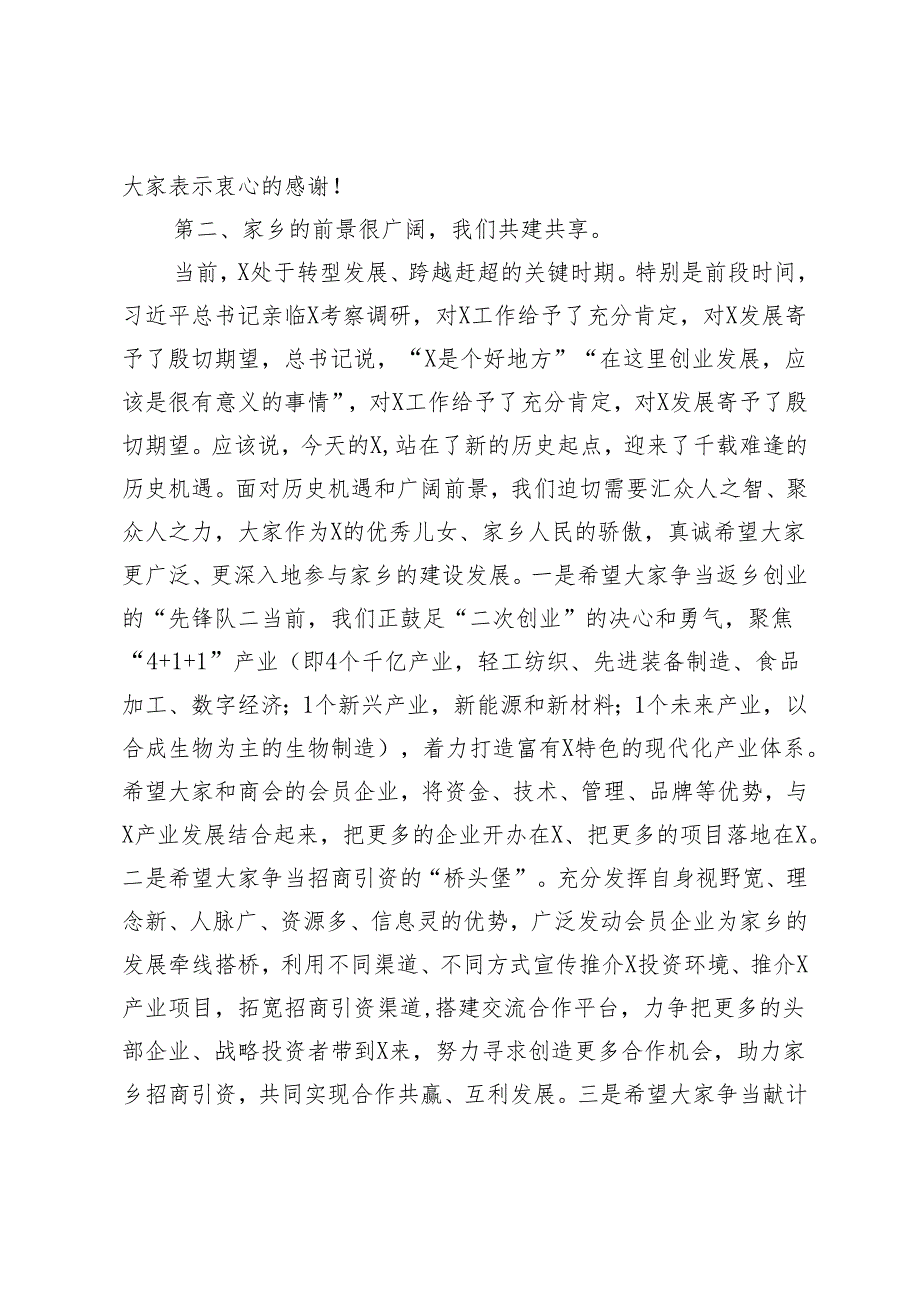 大家表示衷心的感谢！
第二、家乡的前景很广阔，我们共建共享。
当前，X处于转型发展、跨越赶超的关键时期。特别是前段时间，
习近平总书记亲临X考察调研，对X工作给予了充分肯定，对X发展寄
予了殷切期望，总书记说，“X是个好地方”“在这里创业发展，应
该是很有意义的事情”，对X工作给予了充分肯定，对X发展寄予了殷
切期望。应该说，今天的X,站在了新的历史起点，迎来了千载难逢的
历史机遇。面对历史机遇和广阔前景，我们迫切需要汇众人之智、聚
众人之力，大家作为X的优秀儿女、家乡人民的骄傲，真诚希望大家
更广泛、更深入地参与家乡的建设发展。一是希望大家争当返乡创业
的“先锋队二当前，我们正鼓足“二次创业”的决心和勇气，聚焦
“4+1+1”产业（即4个千亿产业，轻工纺织、先进装备制造、食品
加工、数字经济；1个新兴产业，新能源和新材料；1个未来产业，以
合成生物为主的生物制造），着力打造富有X特色的现代化产业体系。
希望大家和商会的会员企业，将资金、技术、管理、品牌等优势，与
X产业发展结合起来，把更多的企业开办在X、把更多的项目落地在X。
二是希望大家争当招商引资的“桥头堡”。充分发挥自身视野宽、理
念新、人脉广、资源多、信息灵的优势，广泛发动会员企业为家乡的
发展牵线搭桥，利用不同渠道、不同方式宣传推介X投资环境、推介X
产业项目，拓宽招商引资渠道,搭建交流合作平台，力争把更多的头
部企业、战略投资者带到X来，努力寻求创造更多合作机会，助力家
乡招商引资，共同实现合作共赢、互利发展。三是希望大家争当献计